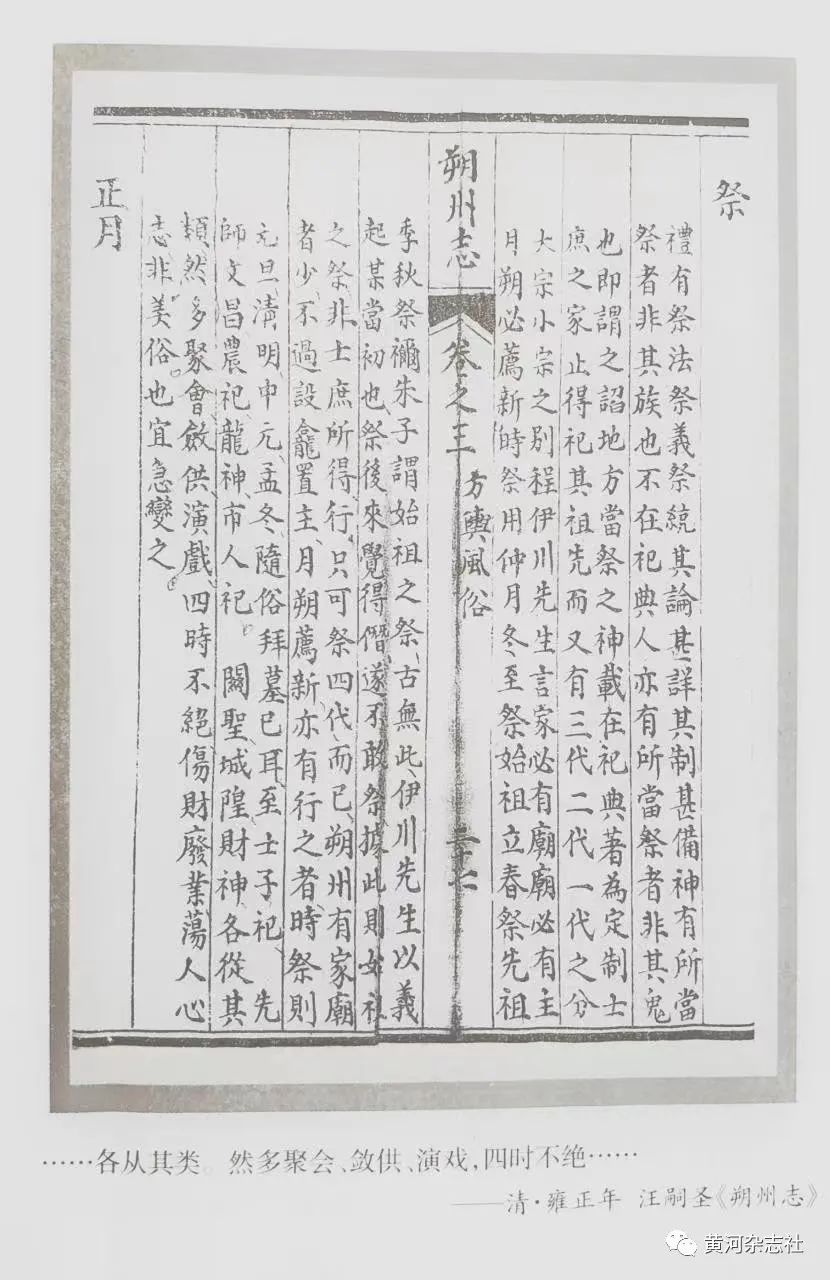 祭
禮有祭法祭義祭統其論甚詳其制甚備神有所當
祭者非其族也不在祀典人亦有所當祭者非其鬼
也即謂之諂地方當祭之神載在祀典著為定制士
庶之家止得祀其祖先而又有三代二代一代之分
大宗小宗之別程伊川先生言家必有廟廟必有主
月朔必薦新時祭用仲月冬至祭始祖立春祭先祖
朔州志
卷之三
方輿風俗
三十七
季秋祭禰朱子謂始祖之祭古無此伊川先生以義
起某當初也祭後來覺得僭遂不敢祭據此則始祖
之祭非士庶所得行只可祭四代而已朔州有家廟
者少不過設龕置主月朔薦新亦有行之者時祭則
元旦清明中元孟冬隨俗拜墓已耳至士子祀 先
師文昌農祀龍神市人祀 關聖城隍財神各從其
類然多聚會斂供演戲四時不絕傷財廢業蕩人心
志非美俗也宜急變之
正月
……各从其类。然多聚会、敛供、演戏,四时不绝……
——清·雍正年 汪嗣圣《朔州志》
黄河杂志社